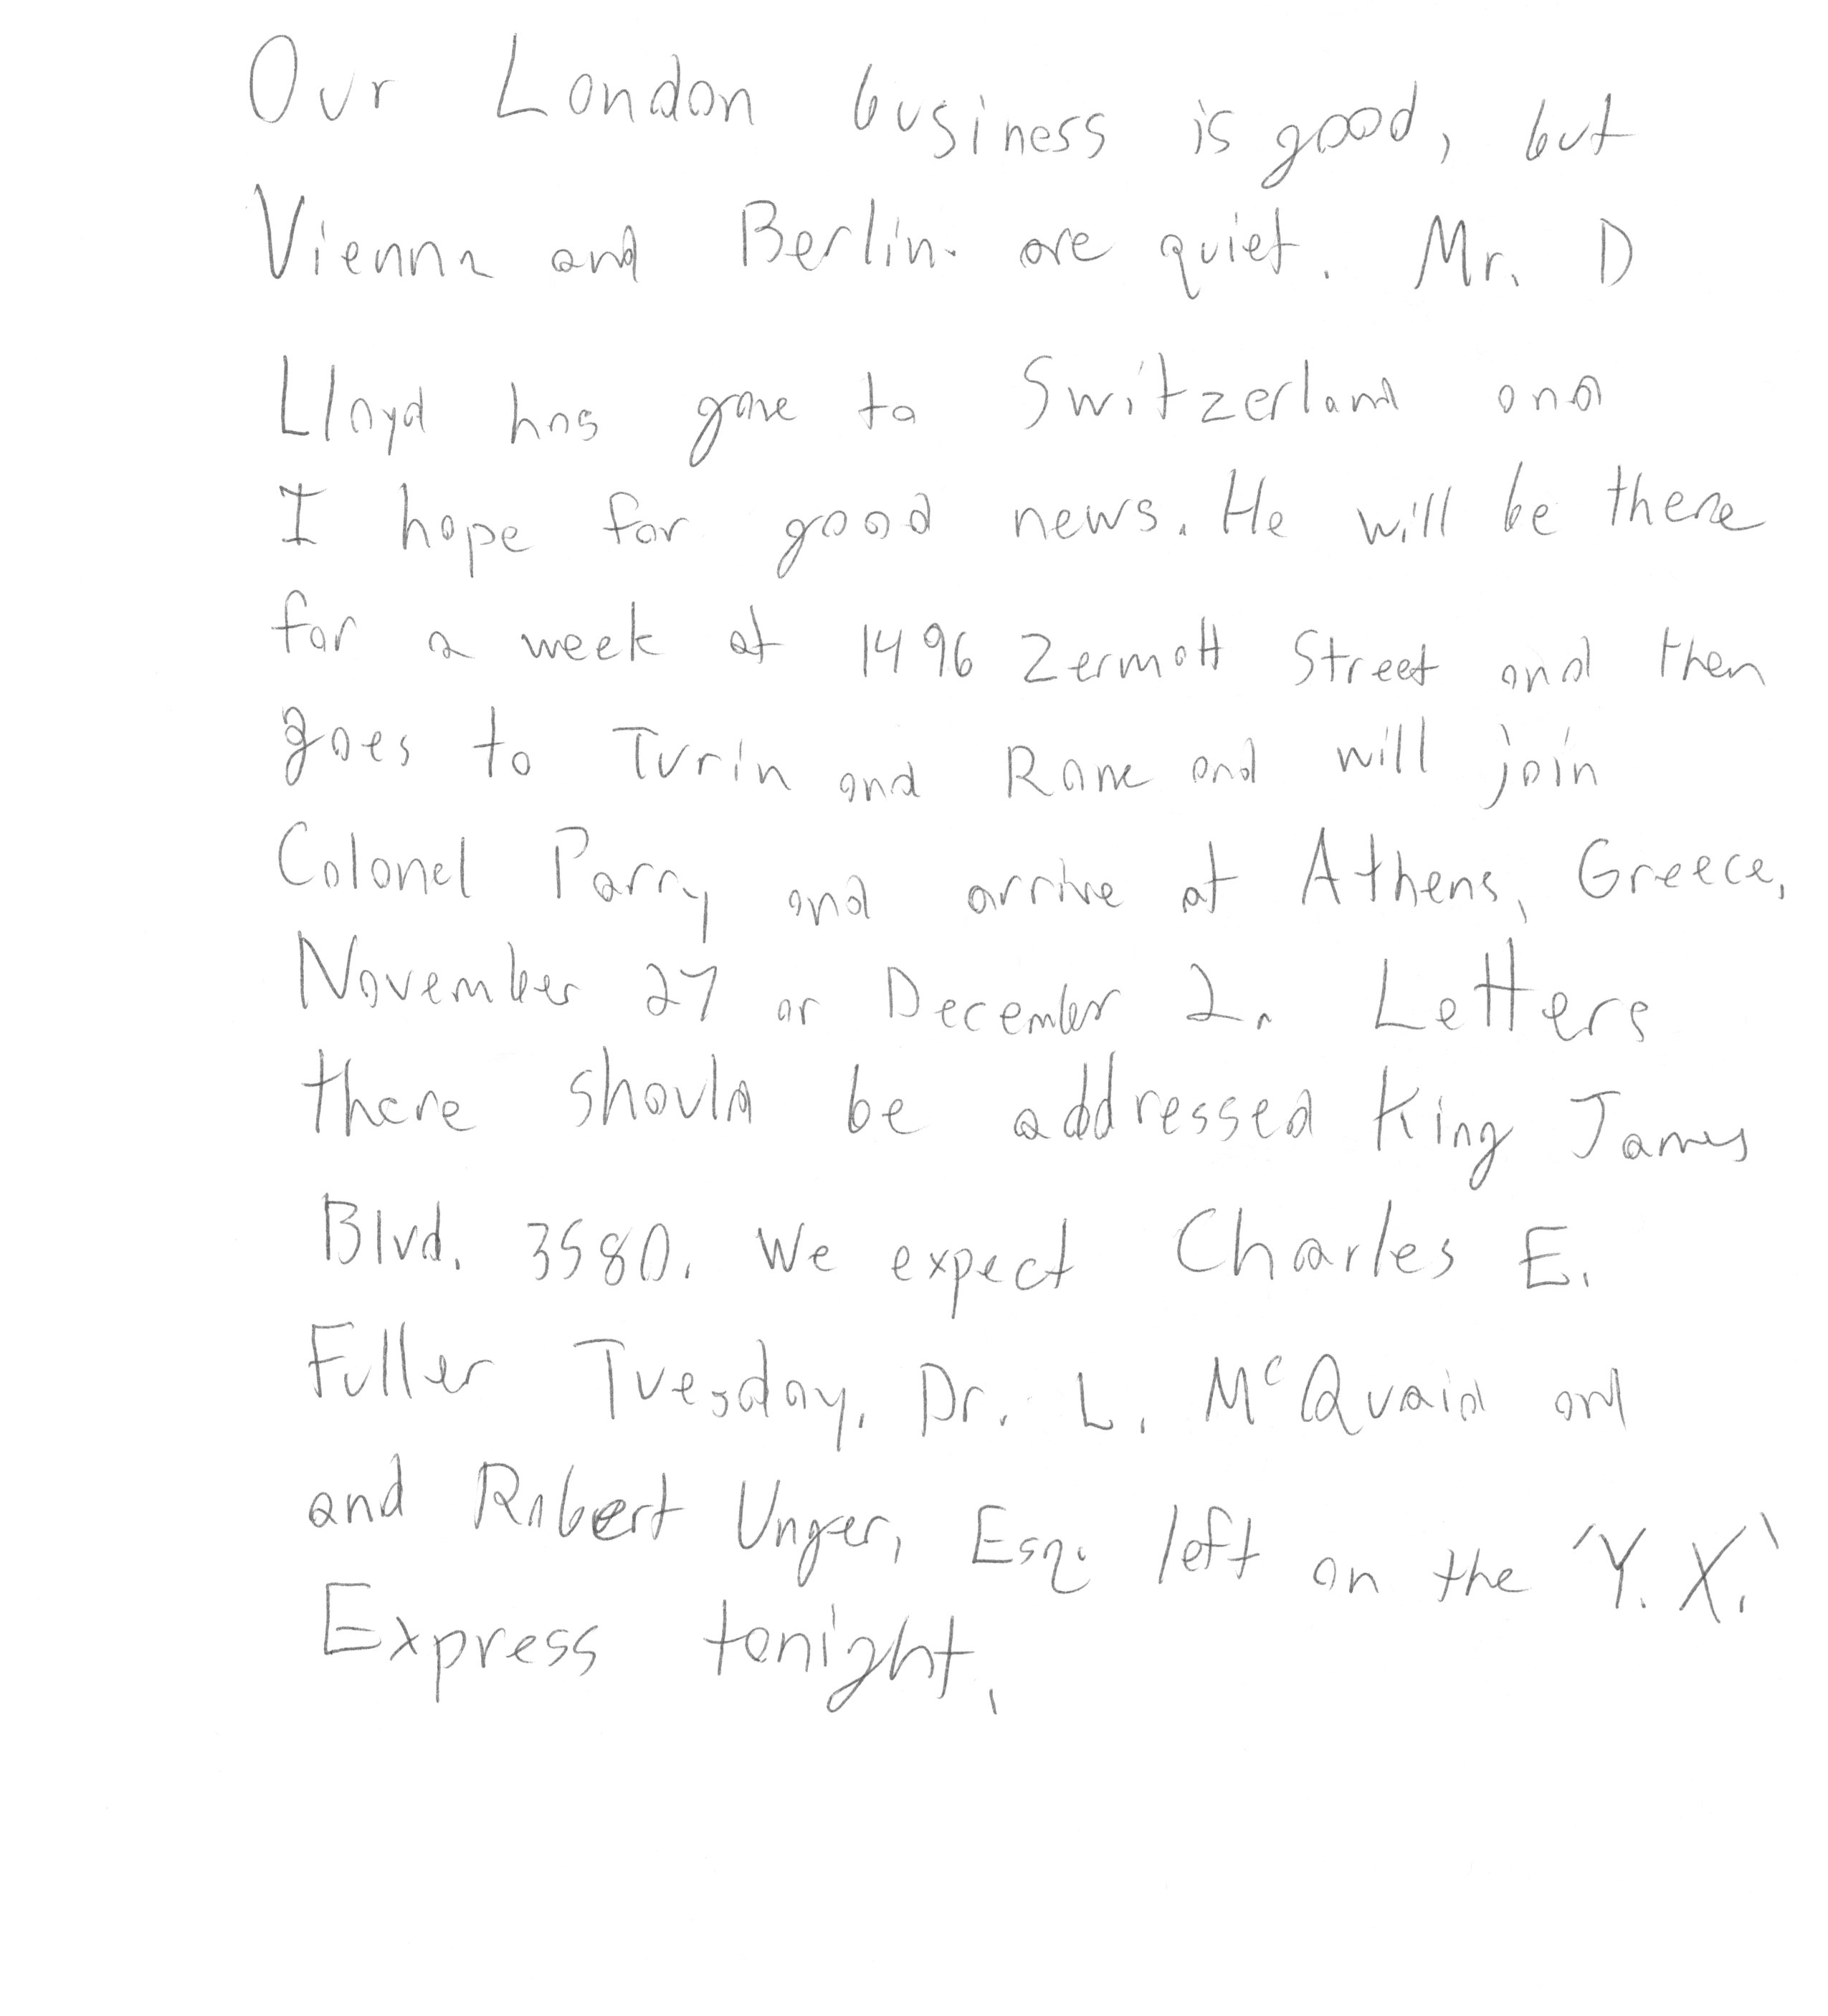 Our London business is good, but
Vienna and Berlin. are quiet. Mr. D
Lloyd has gone to Switzerland and
I hope for good news. He will be there
for a week at 1496 Zermott Street and then
goes to Turin and Rome and will join
Colonel Parry and arrive at Athens, Greece,
November 27 or December 2. Letters
there should be addressed King James
Blvd. 3580. We expect Charles E.
Fuller Tuesday. Dr. L. McQuaid and
and Robert Unger, Esq. left on the 'Y.X.'
Express tonight.